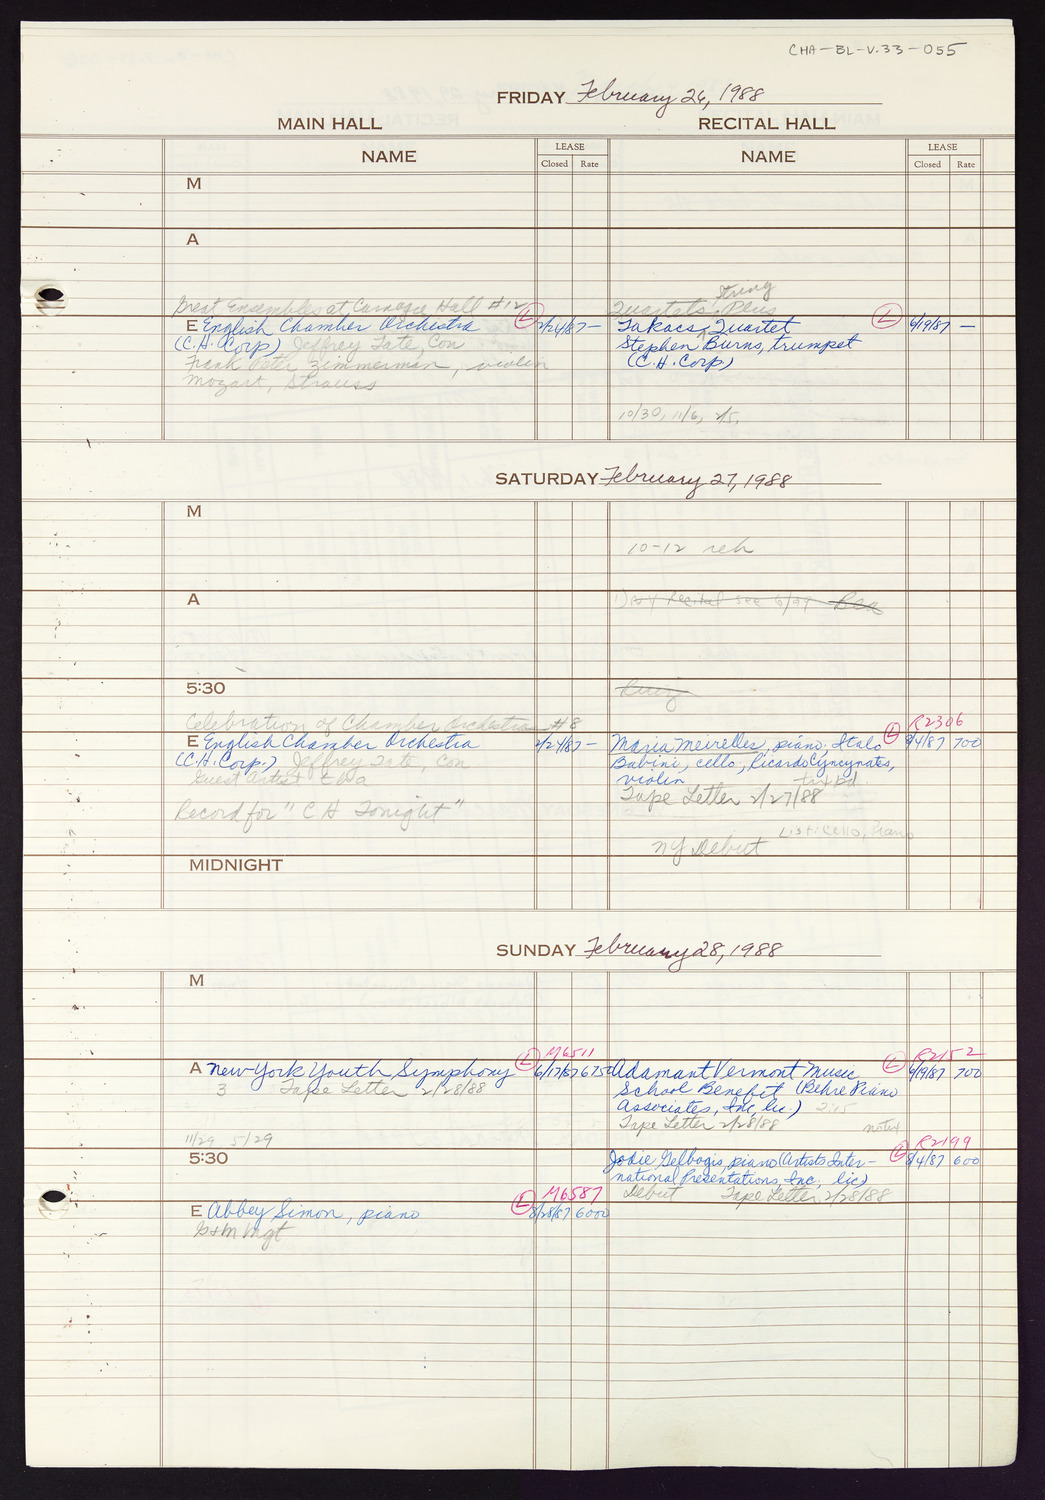 CHA-BL-V.33-055
FRIDAY February 26, 1988
MAIN HALL RECITAL HALL
NAME LEASE Closed Rate NAME LEASE Closed Rate
M
A
Great Ensembles at Carnegie Hall #12
String
Quartets Plus
E English Chamber Orchestra L 2/24/87 —
Takacs Quartet L 6/9/87 —
(C.H. Corp) Jeffrey Tate, Con
Stephen Burns, trumpet
Frank Peter Zimmerman, violin
(C.H. Corp)
Mozart, Strauss
10/30, 11/6, 2/5,
SATURDAY February 27, 1988
M
10-12 reh
A
5:30
Celebration of Chamber Orchestras #8
R2306
E English Chamber Orchestra 2/24/87 —
Maria Meirelles, piano, Italo L 9/4/87 700
(C.H. Corp.) Jeffrey Tate, Con
Babini, cello, Ricardo Cyncynates,
Guest Artist tba
violin
Tape Letter 2/27/88
Record for "C H Tonight"
NY Debut
MIDNIGHT
SUNDAY February 28, 1988
M
M6511 R2152
A New York Youth Symphony L 6/17/87 6750
Adamant Vermont Music L 6/9/87 700
3 Tape Letter 2/28/88
School Benefit (Behre Piano
Associates, Inc, lic) 2:15
Tape Letter 2/28/88 notix
11/29 5/29
R2199
5:30
Jodie Gelbogis, piano (Artists Inter- L 8/4/87 600
national Presentations, Inc, lic)
Debut Tape Letter 2/28/88
M6587
E Abbey Simon, piano L 8/28/87 6000
G+M Mgt